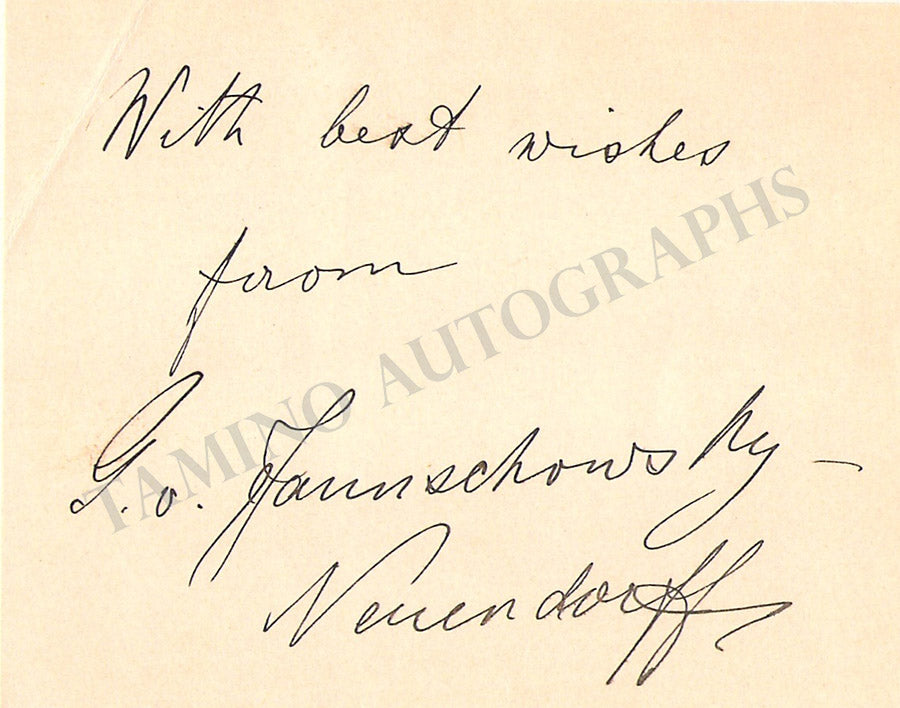 With best wishes
from
G. v. Januschowsky -
Neuendorff
TAMINO AUTOGRAPHS